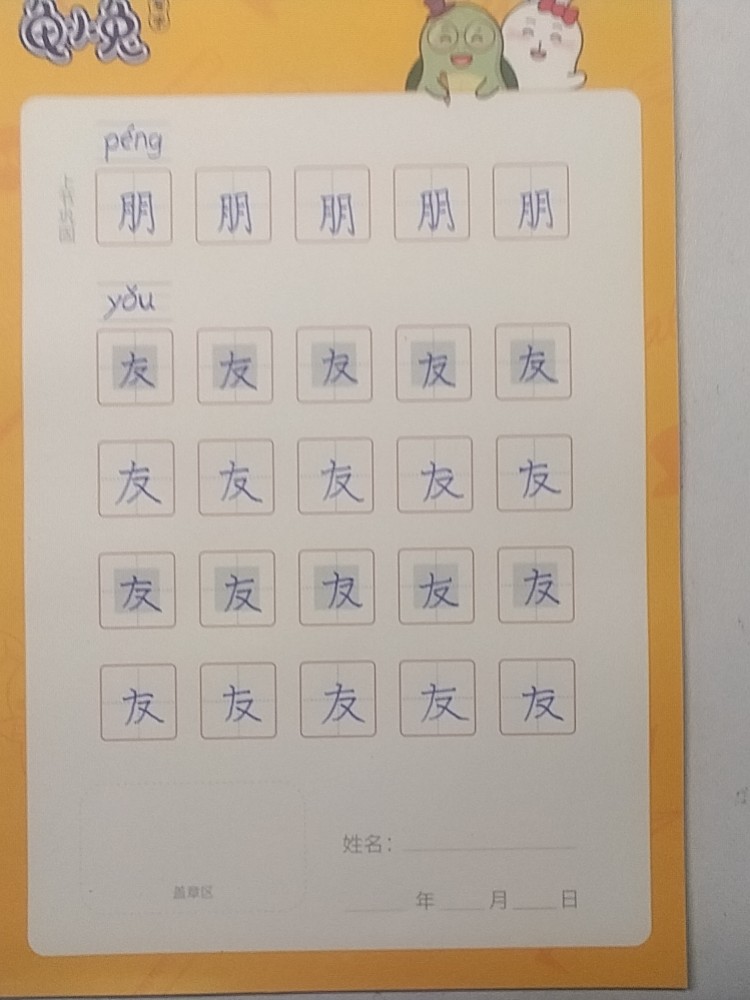 龟小兔
péng
朋 朋 朋 朋 朋
yǒu
友 友 友 友 友
友 友 友 友 友
友 友 友 友 友
友 友 友 友 友
姓名:
盖章区
年 月 日